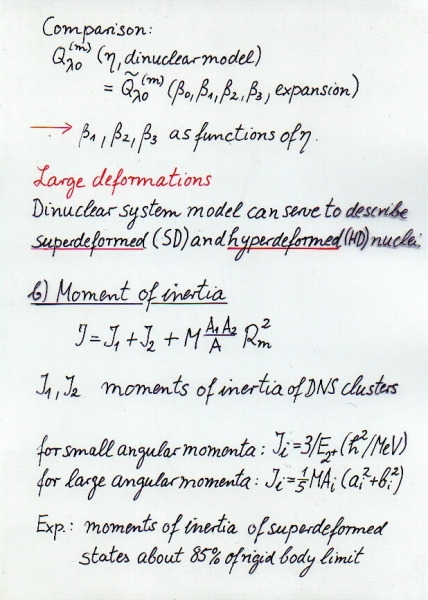 Comparison:
Q_λ0^(m) (η, dinuclear model)
= Q̃_λ0^(m) (β₀, β₁, β₂, β₃, expansion)
→ β₁, β₂, β₃ as functions of η.
Large deformations
Dinuclear system model can serve to describe
superdeformed (SD) and hyperdeformed (HD) nuclei.
b) Moment of inertia
ℑ = ℑ₁ + ℑ₂ + M A₁A₂/A R_m²
ℑ₁, ℑ₂ moments of inertia of DNS clusters
for small angular momenta: ℑ_i = 3/E_2⁺ (ħ²/MeV)
for large angular momenta: ℑ_i = 1/5 MA_i (a_i² + b_i²)
Exp.: moments of inertia of superdeformed
states about 85% of rigid body limit